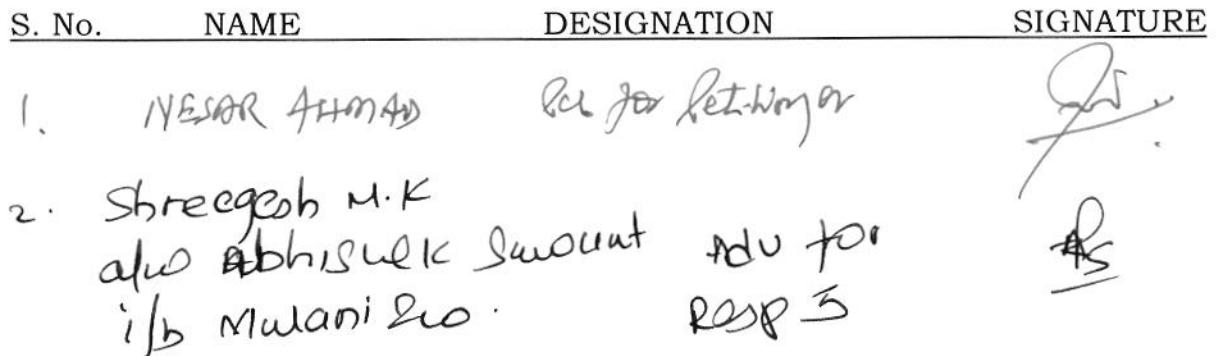 S. No. NAME DESIGNATION SIGNATURE
1. NESAR AHMAD for Petitioner
2. Shreegesh M.K
a/w Abhishek Sawant Adv for
i/b Mulani & Co. Resp 5